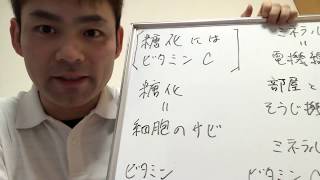 糖化には
ビタミンC
糖化
=
細胞のサビ
ビタミン
ミネラル
=
電機
部屋と
そうじ
ミネラル
ビタミン